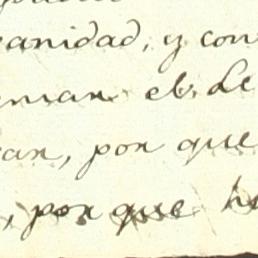 anidad, y con
eman el De
an, por que
, por que h